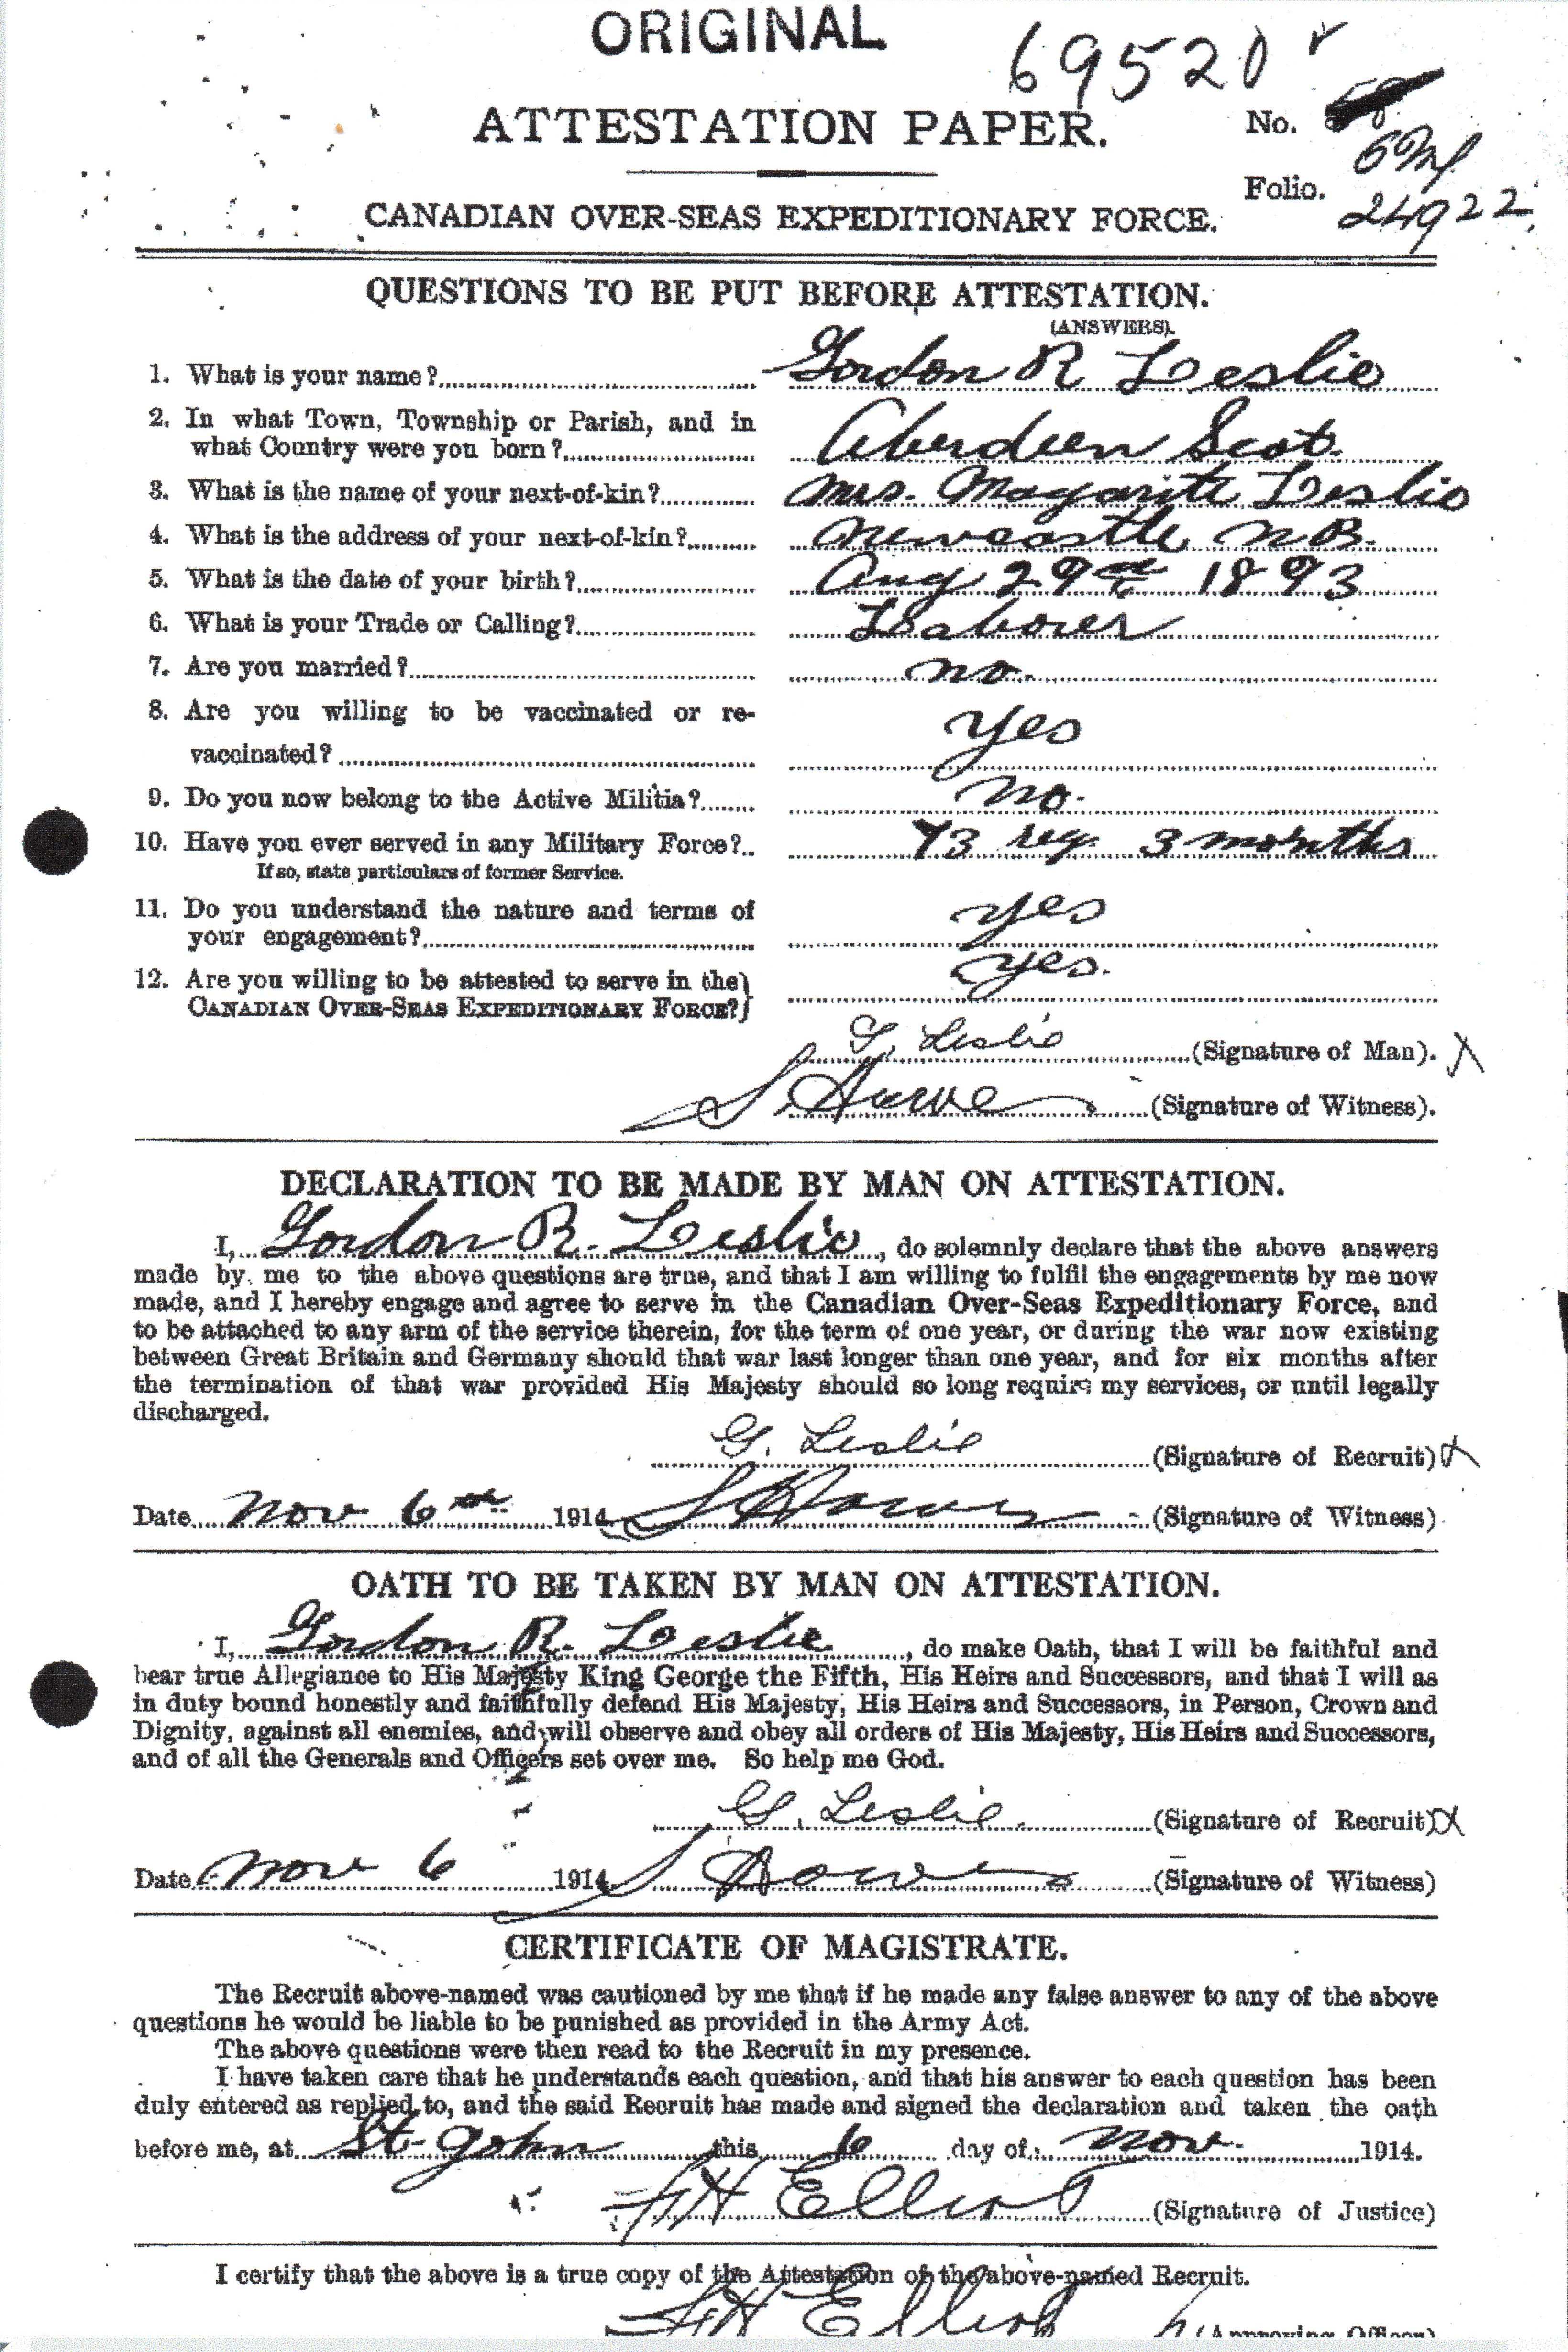 ORIGINAL
69520
ATTESTATION PAPER.
No.
Folio.
24922
CANADIAN OVER-SEAS EXPEDITIONARY FORCE.
QUESTIONS TO BE PUT BEFORE ATTESTATION.
(ANSWERS).
1. What is your name? Gordon R Leslie
2. In what Town, Township or Parish, and in
what Country were you born? Aberdeen Scot.
3. What is the name of your next-of-kin? Mrs. Magarite Leslie
4. What is the address of your next-of-kin? Newcastle N.B.
5. What is the date of your birth? Aug 29th 1893
6. What is your Trade or Calling? Laborer
7. Are you married? no.
8. Are you willing to be vaccinated or re-
vaccinated? yes
9. Do you now belong to the Active Militia? no.
10. Have you ever served in any Military Force? 73 reg. 3 months
If so, state particulars of former Service.
11. Do you understand the nature and terms of
your engagement? yes
12. Are you willing to be attested to serve in the
CANADIAN OVER-SEAS EXPEDITIONARY FORCE? yes.
G. Leslie (Signature of Man). X
(Signature of Witness).
DECLARATION TO BE MADE BY MAN ON ATTESTATION.
I, Gordon R. Leslie, do solemnly declare that the above answers
made by me to the above questions are true, and that I am willing to fulfil the engagements by me now
made, and I hereby engage and agree to serve in the Canadian Over-Seas Expeditionary Force, and
to be attached to any arm of the service therein, for the term of one year, or during the war now existing
between Great Britain and Germany should that war last longer than one year, and for six months after
the termination of that war provided His Majesty should so long require my services, or until legally
discharged.
G. Leslie (Signature of Recruit) X
Date Nov 6th 1914 (Signature of Witness)
OATH TO BE TAKEN BY MAN ON ATTESTATION.
I, Gordon R. Leslie, do make Oath, that I will be faithful and
bear true Allegiance to His Majesty King George the Fifth, His Heirs and Successors, and that I will as
in duty bound honestly and faithfully defend His Majesty, His Heirs and Successors, in Person, Crown and
Dignity, against all enemies, and will observe and obey all orders of His Majesty, His Heirs and Successors,
and of all the Generals and Officers set over me. So help me God.
G. Leslie (Signature of Recruit) X
Date Nov 6 1914 (Signature of Witness)
CERTIFICATE OF MAGISTRATE.
The Recruit above-named was cautioned by me that if he made any false answer to any of the above
questions he would be liable to be punished as provided in the Army Act.
The above questions were then read to the Recruit in my presence.
I have taken care that he understands each question, and that his answer to each question has been
duly entered as replied to, and the said Recruit has made and signed the declaration and taken the oath
before me, at St. John this 6 day of Nov. 1914.
H Elliot (Signature of Justice)
I certify that the above is a true copy of the Attestation of the above-named Recruit.
H Elliot (Approving Officer)